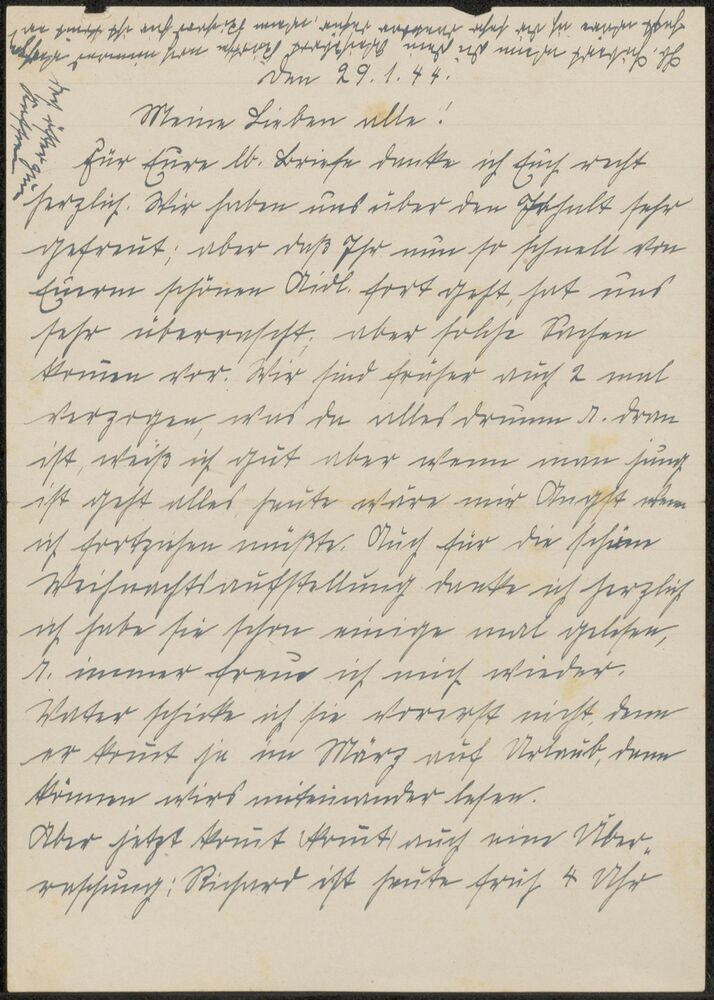 Den 29.1.44.
Meine Lieben alle!
Für Eure lb. Briefe danke ich Euch recht
herzlich. Wir haben uns über den Inhalt sehr
gefreut; aber daß Ihr nun so schnell von
Euerm schönen Aidl. fort geht, hat uns
sehr überrascht, aber solche Sachen
kom̅en vor. Wir sind früher auch 2 mal
verzogen, was da alles drum u. dran
ist, weiß ich gut aber wenn man jung
ist geht alles, heute wäre mir Angst wenn
ich fortziehen müßte. Auch für die schöne
Weihnachtsaufstellung danke ich herzlich
ich habe sie schon einige mal gelesen,
u. immer freue ich mich wieder.
Vater schicke ich sie vorerst nicht, denn
er kom̅t ja im März auf Urlaub, dann
können wirs miteinander lesen.
Aber jetzt kom̅t (kom̅t) auch eine Über-
raschung: Richard ist heute früh 4 Uhr